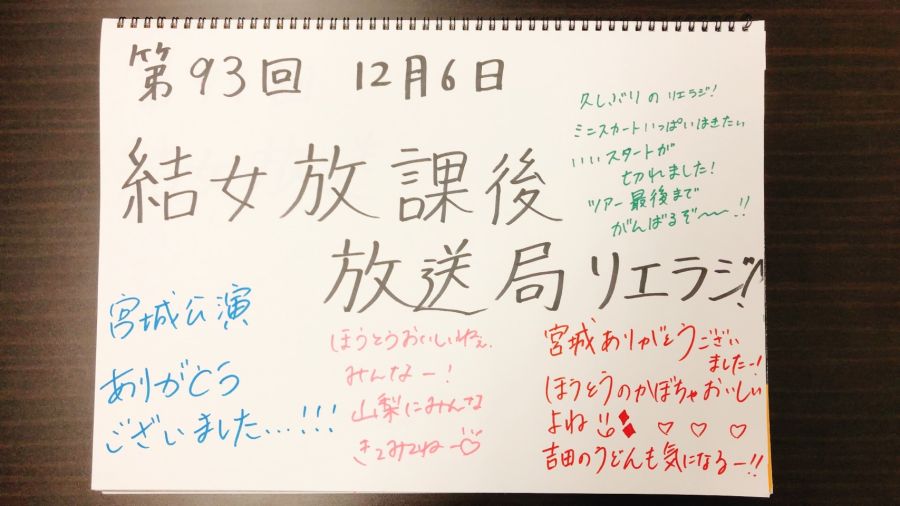 第93回 12月6日
結女放課後
放送局リエラジ!
久しぶりのリエラジ!
ミニスカートいっぱいはきたい
いいスタートが
切れました!
ツアー最後まで
がんばるぞ〜〜!!
宮城公演
ありがとう
ございました...!!!
ほうとうおいしいねぇ、
みんなー!
山梨にみんな
きてみてねー♡
宮城ありがとうござい
ましたー!
ほうとうのかぼちゃおいしい
よね ♡ ♡ ♡
吉田のうどんも気になるー!!